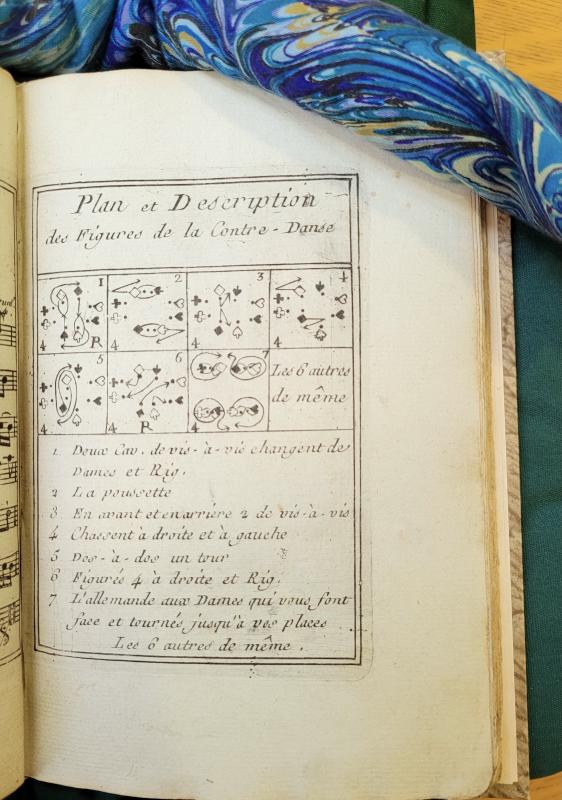 Plan et Description
des Figures de la Contre-Danse
1 2 3 4
4 R 4 4 4
5 6 7 Les 6 autres
de même
4 4 R 4
1 Deux Cav. de vis-à-vis changent de
Dames et Rig.
2 La poussette
3 En avant et en arriére 2 de vis-à-vis
4 Chassent à droite et à gauche
5 Dos-à-dos un tour
6 Figurés 4 à droite et Rig.
7 L'allemande aux Dames qui vous font
face et tournés jusqu'à vos places
Les 6 autres de même.